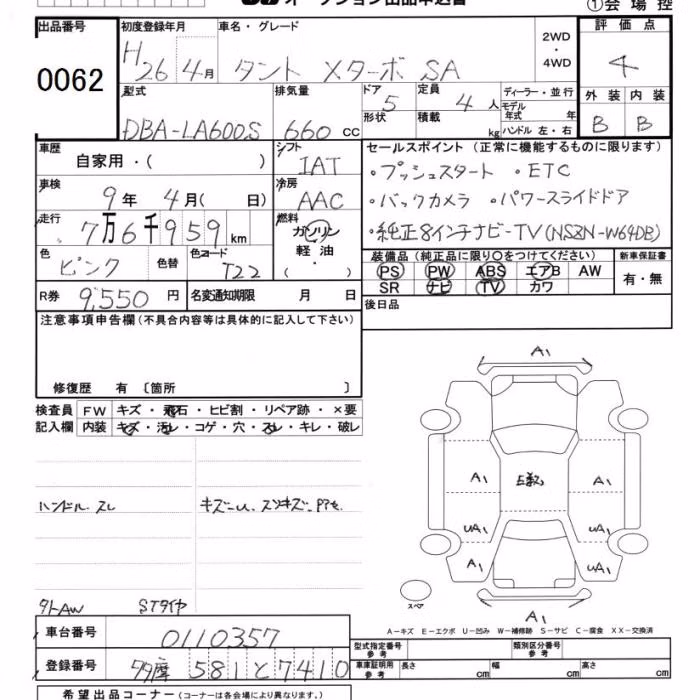 オークション出品申込書 ①会場控
出品番号 初度登録年月 車名・グレード 2WD・4WD 評価点
0062 H26 4月 タント Xターボ SA 4
型式 排気量 ドア 定員 ディーラー・並行 外装 内装
DBA-LA600S 660cc 5 4人 モデル年式 年 B B
形状 積載 kg ハンドル 左・右
車歴 シフト セールスポイント(正常に機能するものに限ります)
自家用・( ) IAT ・プッシュスタート ・ETC
車検 冷房
9年 4月( 日) AAC ・バックカメラ ・パワースライドドア
走行 燃料
7万6千959km ガソリン ・純正8インチナビ-TV(NSZN-W64DB)
軽油
( ・ )
色 色替 色コード 装備品(純正品に限り○をつけてください) 新車保証書
ピンク T22 PS PW ABS エアB AW 有・無
SR ナビ TV カワ
R券 9,550円 名変通知期限 月 日 後日品
注意事項申告欄(不具合内容等は具体的に記入して下さい)
修復歴 有 〔箇所 〕
検査員 FW キズ・飛石・ヒビ割・リペア跡・×要
記入欄 内装 キズ・汚レ・コゲ・穴・スレ・キレ・破レ
A1
A1 A1
UA1 UA1
A1 UA1
ハンドル.スレ
スペア
A1
A-キズ E-エクボ U-凹み W-補修跡 S-サビ C-腐食 XX-交換済
車台番号 0110357 型式指定番号 参考 類別区分番号 参考
登録番号 581 と 7410 車庫証明用 参考 長さ cm 幅 cm 高さ cm
希望出品コーナー(コーナーは各会場により異なります。)